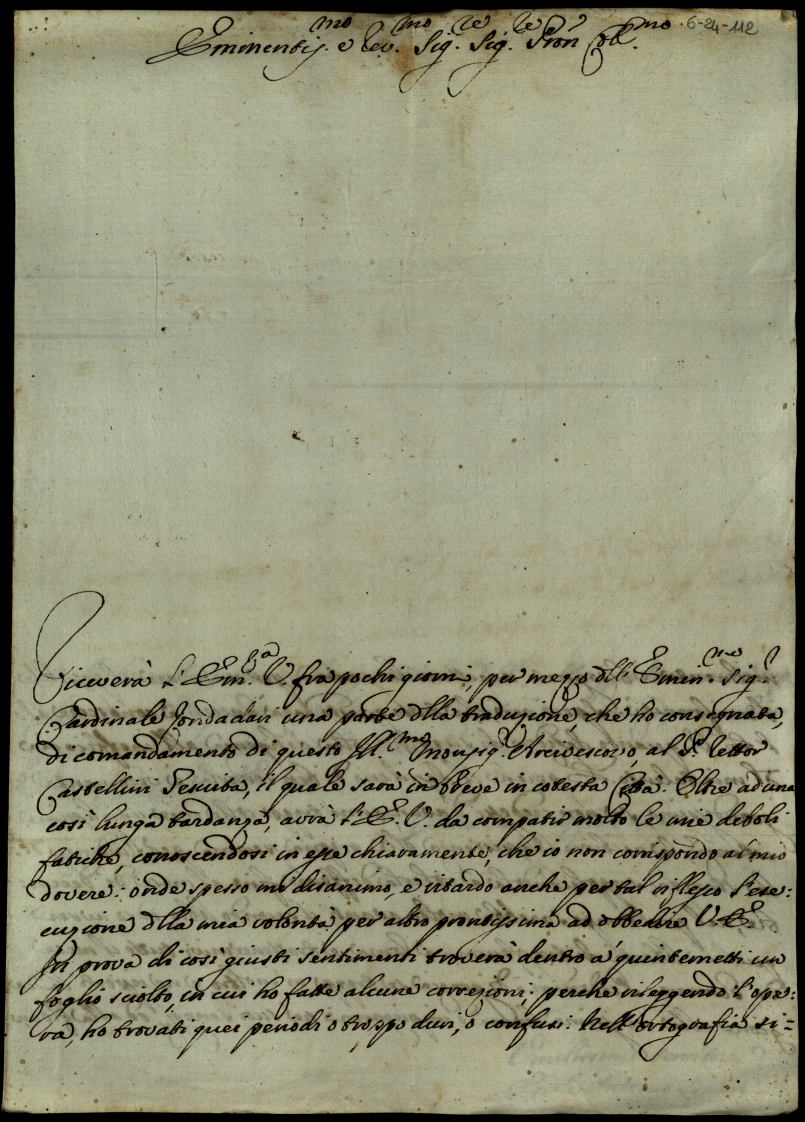 6-24-112
Eminentis.mo e Rev.mo Sig.re Sig.re Pron Coll.mo
Riceverà l'Em.za V. fra pochi giorni, per mezzo dell' Emin.mo Sig.r
Cardinale Zondadari una parte della traduzione, che ho consegnata,
di comandamento di questo Ill.mo Monsig.r Arcivescovo, al P. Rettor
Castellini Gesuita, il quale sarà in breve in cotesta Città. Oltre ad una
così lunga tardanza, avrà l'E. V. da compatir molto le mie deboli
fatiche, conoscendosi in esse chiaramente, che io non corrispondo al mio
dovere: onde spesso mi disanimo, e ritardo anche per tal riflesso l'ese:
cuzione della mia volontà per altro prontissima ad obbedire V. E.
In prova di così giusti sentimenti troverà dentro a' quinternetti un
foglio sciolto, in cui ho fatte alcune correzioni; perche rileggendo l'ope:
ra, ho trovati quei periodi o troppo duri, o confusi. Nell'Ortografia si=